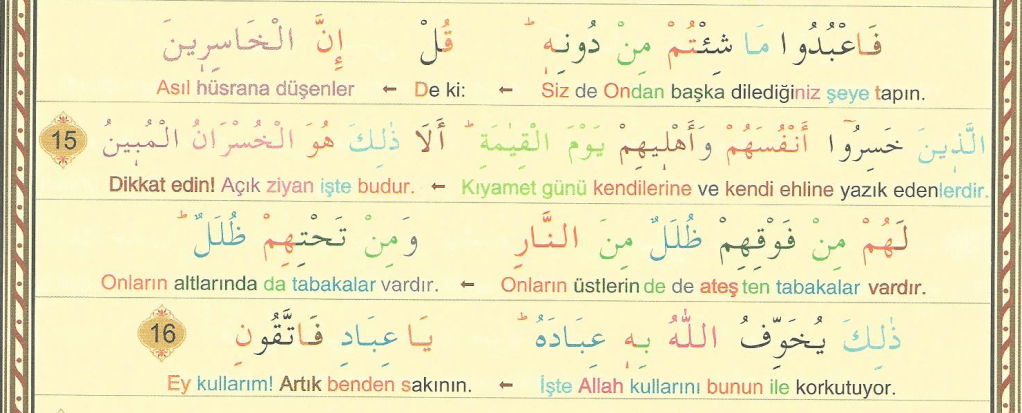 فَاعْبُدُوا مَا شِئْتُمْ مِنْ دُونِهٖ ۜ قُلْ اِنَّ الْخَاسِرٖينَ
Siz de Ondan başka dilediğiniz şeye tapın. ← De ki: ← Asıl hüsrana düşenler
الَّذٖينَ خَسِرُٓوا اَنْفُسَهُمْ وَاَهْلٖيهِمْ يَوْمَ الْقِيٰمَةِ ۜ اَلَا ذٰلِكَ هُوَ الْخُسْرَانُ الْمُبٖينُ 15
Kıyamet günü kendilerine ve kendi ehline yazık edenlerdir. ← Dikkat edin! Açık ziyan işte budur.
لَهُمْ مِنْ فَوْقِهِمْ ظُلَلٌ مِنَ النَّارِ وَمِنْ تَحْتِهِمْ ظُلَلٌ ۜ
Onların üstlerin de de ateş ten tabakalar vardır. ← Onların altlarında da tabakalar vardır.
ذٰلِكَ يُخَوِّفُ اللّٰهُ بِهٖ عِبَادَهُ ۜ يَا عِبَادِ فَاتَّقُونِ 16
İşte Allah kullarını bunun ile korkutuyor. ← Ey kullarım! Artık benden sakının.